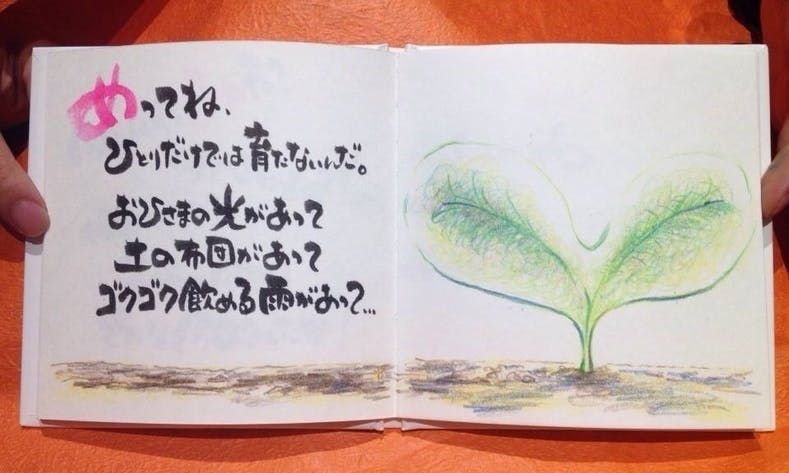 めってね、
ひとりだけでは育たないんだ。
おひさまの光があって
土の布団があって
ゴクゴク飲める雨があって…